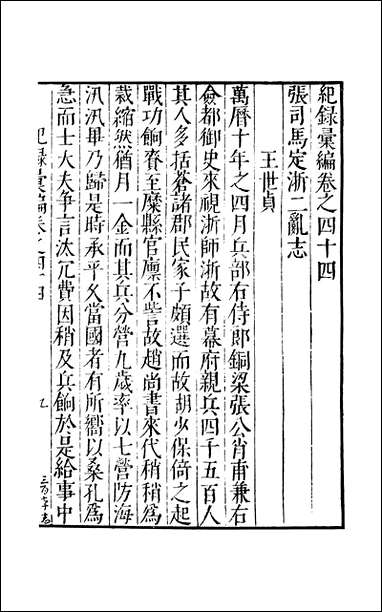 紀錄彙編卷之四十四
張司馬定浙二亂志
王世貞
萬曆十年之四月兵部右侍郎銅梁張公肖甫兼右
僉都御史來視浙師浙故有幕府親兵四千五百人
其人多括蒼諸郡民家子頗選而故胡少保倚之起
戰功餉眷至縻縣官廪不訾故趙尚書來代稍稍為
裁縮然猶月一金而其兵分營九歲率以七營防海
汛汛畢乃歸是時承平久當國者有所嚮以桑孔為
急而士大夫爭言汰冗費因稍及兵餉於是給事中
紀錄彙編卷之四十四